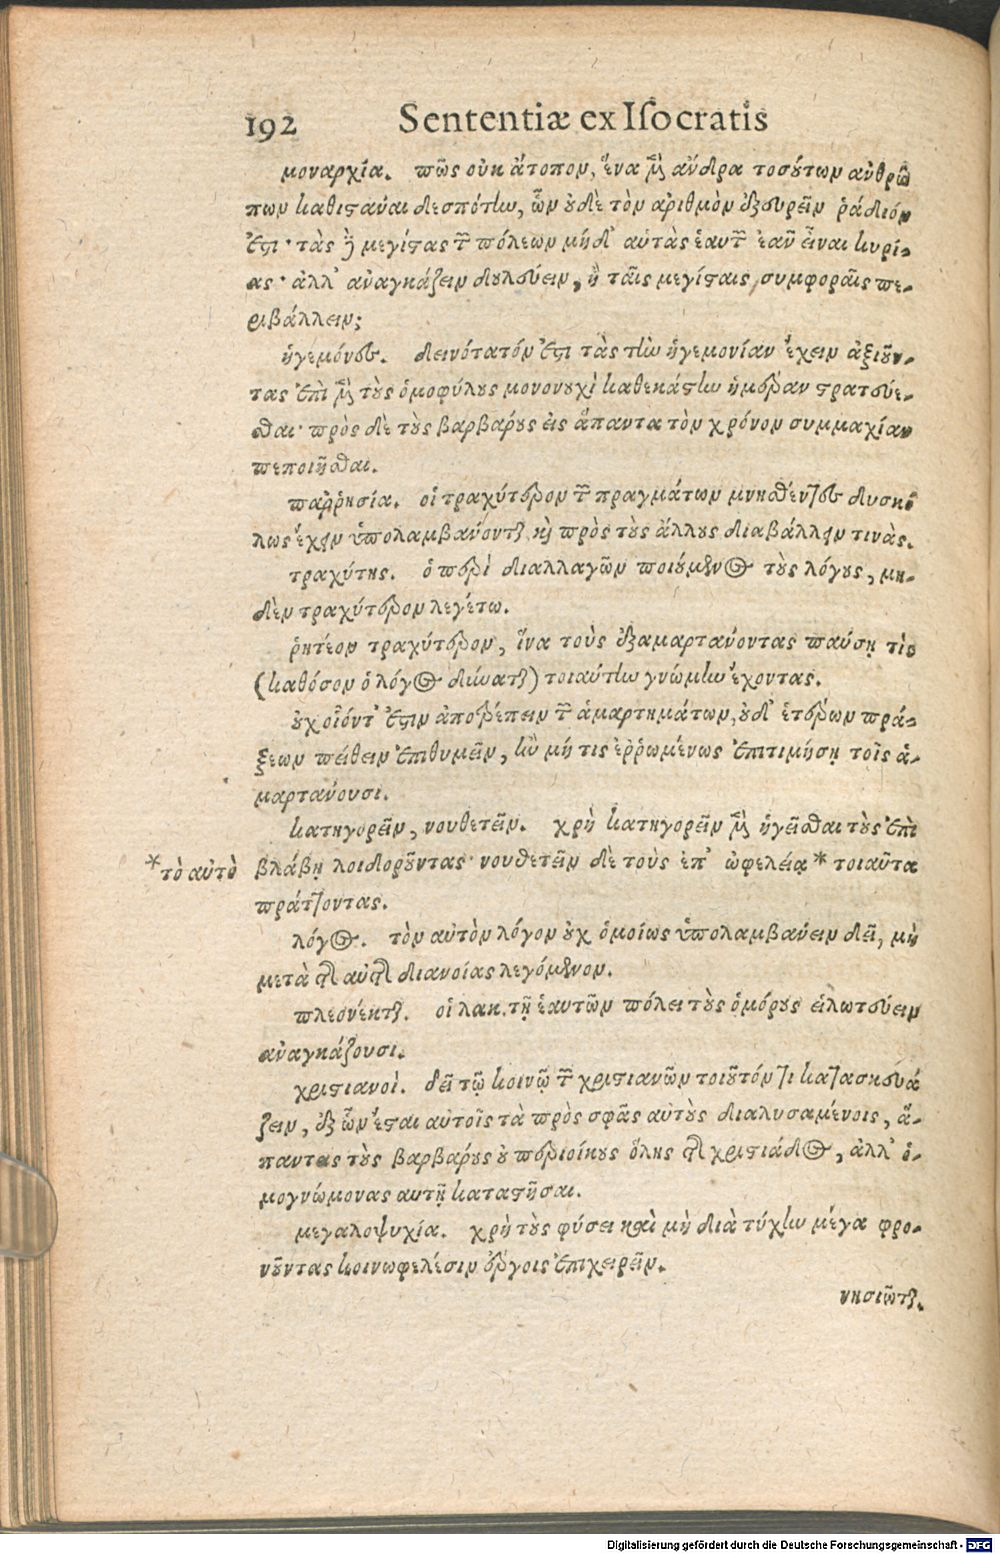 192 Sententiæ ex Iſocratis
μοναρχία. πῶς οὐκ ἄτοπον, ἕνα μὲν ἄνδρα τοσούτων ἀνθρώ
πων καθιστάναι δεσπότην, ὧν οὐδὲ τὸν ἀριθμὸν ἐξευρεῖν ῥᾴδιόν
ἐστι· τὰς δὲ μεγίστας τῶν πόλεων μήδ' αὐτὰς ἑαυτῶν ἐᾶν εἶναι κυρί-
ας· ἀλλ' ἀναγκάζειν δουλεύειν, ἢ ταῖς μεγίσταις συμφοραῖς πε-
ριβάλλειν;
ἡγεμόνες. δεινότατόν ἐστι τὰς τὴν ἡγεμονίαν ἔχειν ἀξιούν-
τας ἐπὶ μὲν τοὺς ὁμοφύλους μονονουχὶ καθεκάστην ἡμέραν στρατεύε-
σθαι· πρὸς δὲ τοὺς βαρβάρους εἰς ἅπαντα τὸν χρόνον συμμαχίαν
πεποιῆσθαι.
παῤῥησία. οἱ τραχύτερον τῶν πραγμάτων μνησθέντες δυσκό
λως ἔχειν ὑπολαμβάνονται καὶ πρὸς τοὺς ἄλλους διαβάλλειν τινὰς.
τραχύτης. ὁ περὶ διαλλαγῶν ποιούμενος τοὺς λόγους, μη-
δὲν τραχύτερον λεγέτω.
ῥητέον τραχύτερον, ἵνα τοὺς ἐξαμαρτάνοντας παύσῃ τὶς
(καθόσον ὁ λόγος δύναται) τοιαύτην γνώμην ἔχοντας.
οὐχ οἷόντ' ἔστιν ἀποτρέπειν τῶν ἁμαρτημάτων, οὐδ' ἑτέρων πρά-
ξεων πείθειν ἐπιθυμεῖν, ἢν μή τις ἐῤῥωμένως ἐπιτιμήσῃ τοῖς ἁ-
μαρτάνουσι.
κατηγορεῖν, νουθετεῖν. χρὴ κατηγορεῖν μὲν ἡγεῖσθαι τοὺς ἐπὶ
βλάβῃ λοιδοροῦντας· νουθετεῖν δὲ τοὺς ἐπ' ὠφελείᾳ * τοιαῦτα
* τὸ αὐτὸ
πράττοντας.
λόγος. τὸν αὐτὸν λόγον οὐχ ὁμοίως ὑπολαμβάνειν δεῖ, μὴ
μετὰ τῆς αὐτῆς διανοίας λεγόμενον.
πλεονέκται. οἱ λακ. τῇ ἑαυτῶν πόλει τοὺς ὁμόρους εἱλωτεύειν
ἀναγκάζουσι.
χριστιανοὶ. δεῖ τῷ κοινῷ τῶν χριστιανῶν τοιοῦτόν τι κατασκευά
ζειν, ἐξ ὧν ἔσται αὐτοῖς τὰ πρὸς σφᾶς αὐτοὺς διαλυσαμένοις, ἅ-
παντας τοὺς βαρβάρους οὐ περιοίκους ὅλης τῆς χριστιάδος, ἀλλ' ὁ-
μογνώμονας αυτῇ καταστῆσαι.
μεγαλοψυχία. χρὴ τοὺς φύσει καὶ μὴ διὰ τύχην μέγα φρο-
νοῦντας κοινωφελέσιν ἔργοις ἐπιχειρεῖν.
νησιῶται.
Digitalisierung gefördert durch die Deutsche Forschungsgemeinschaft - DFG